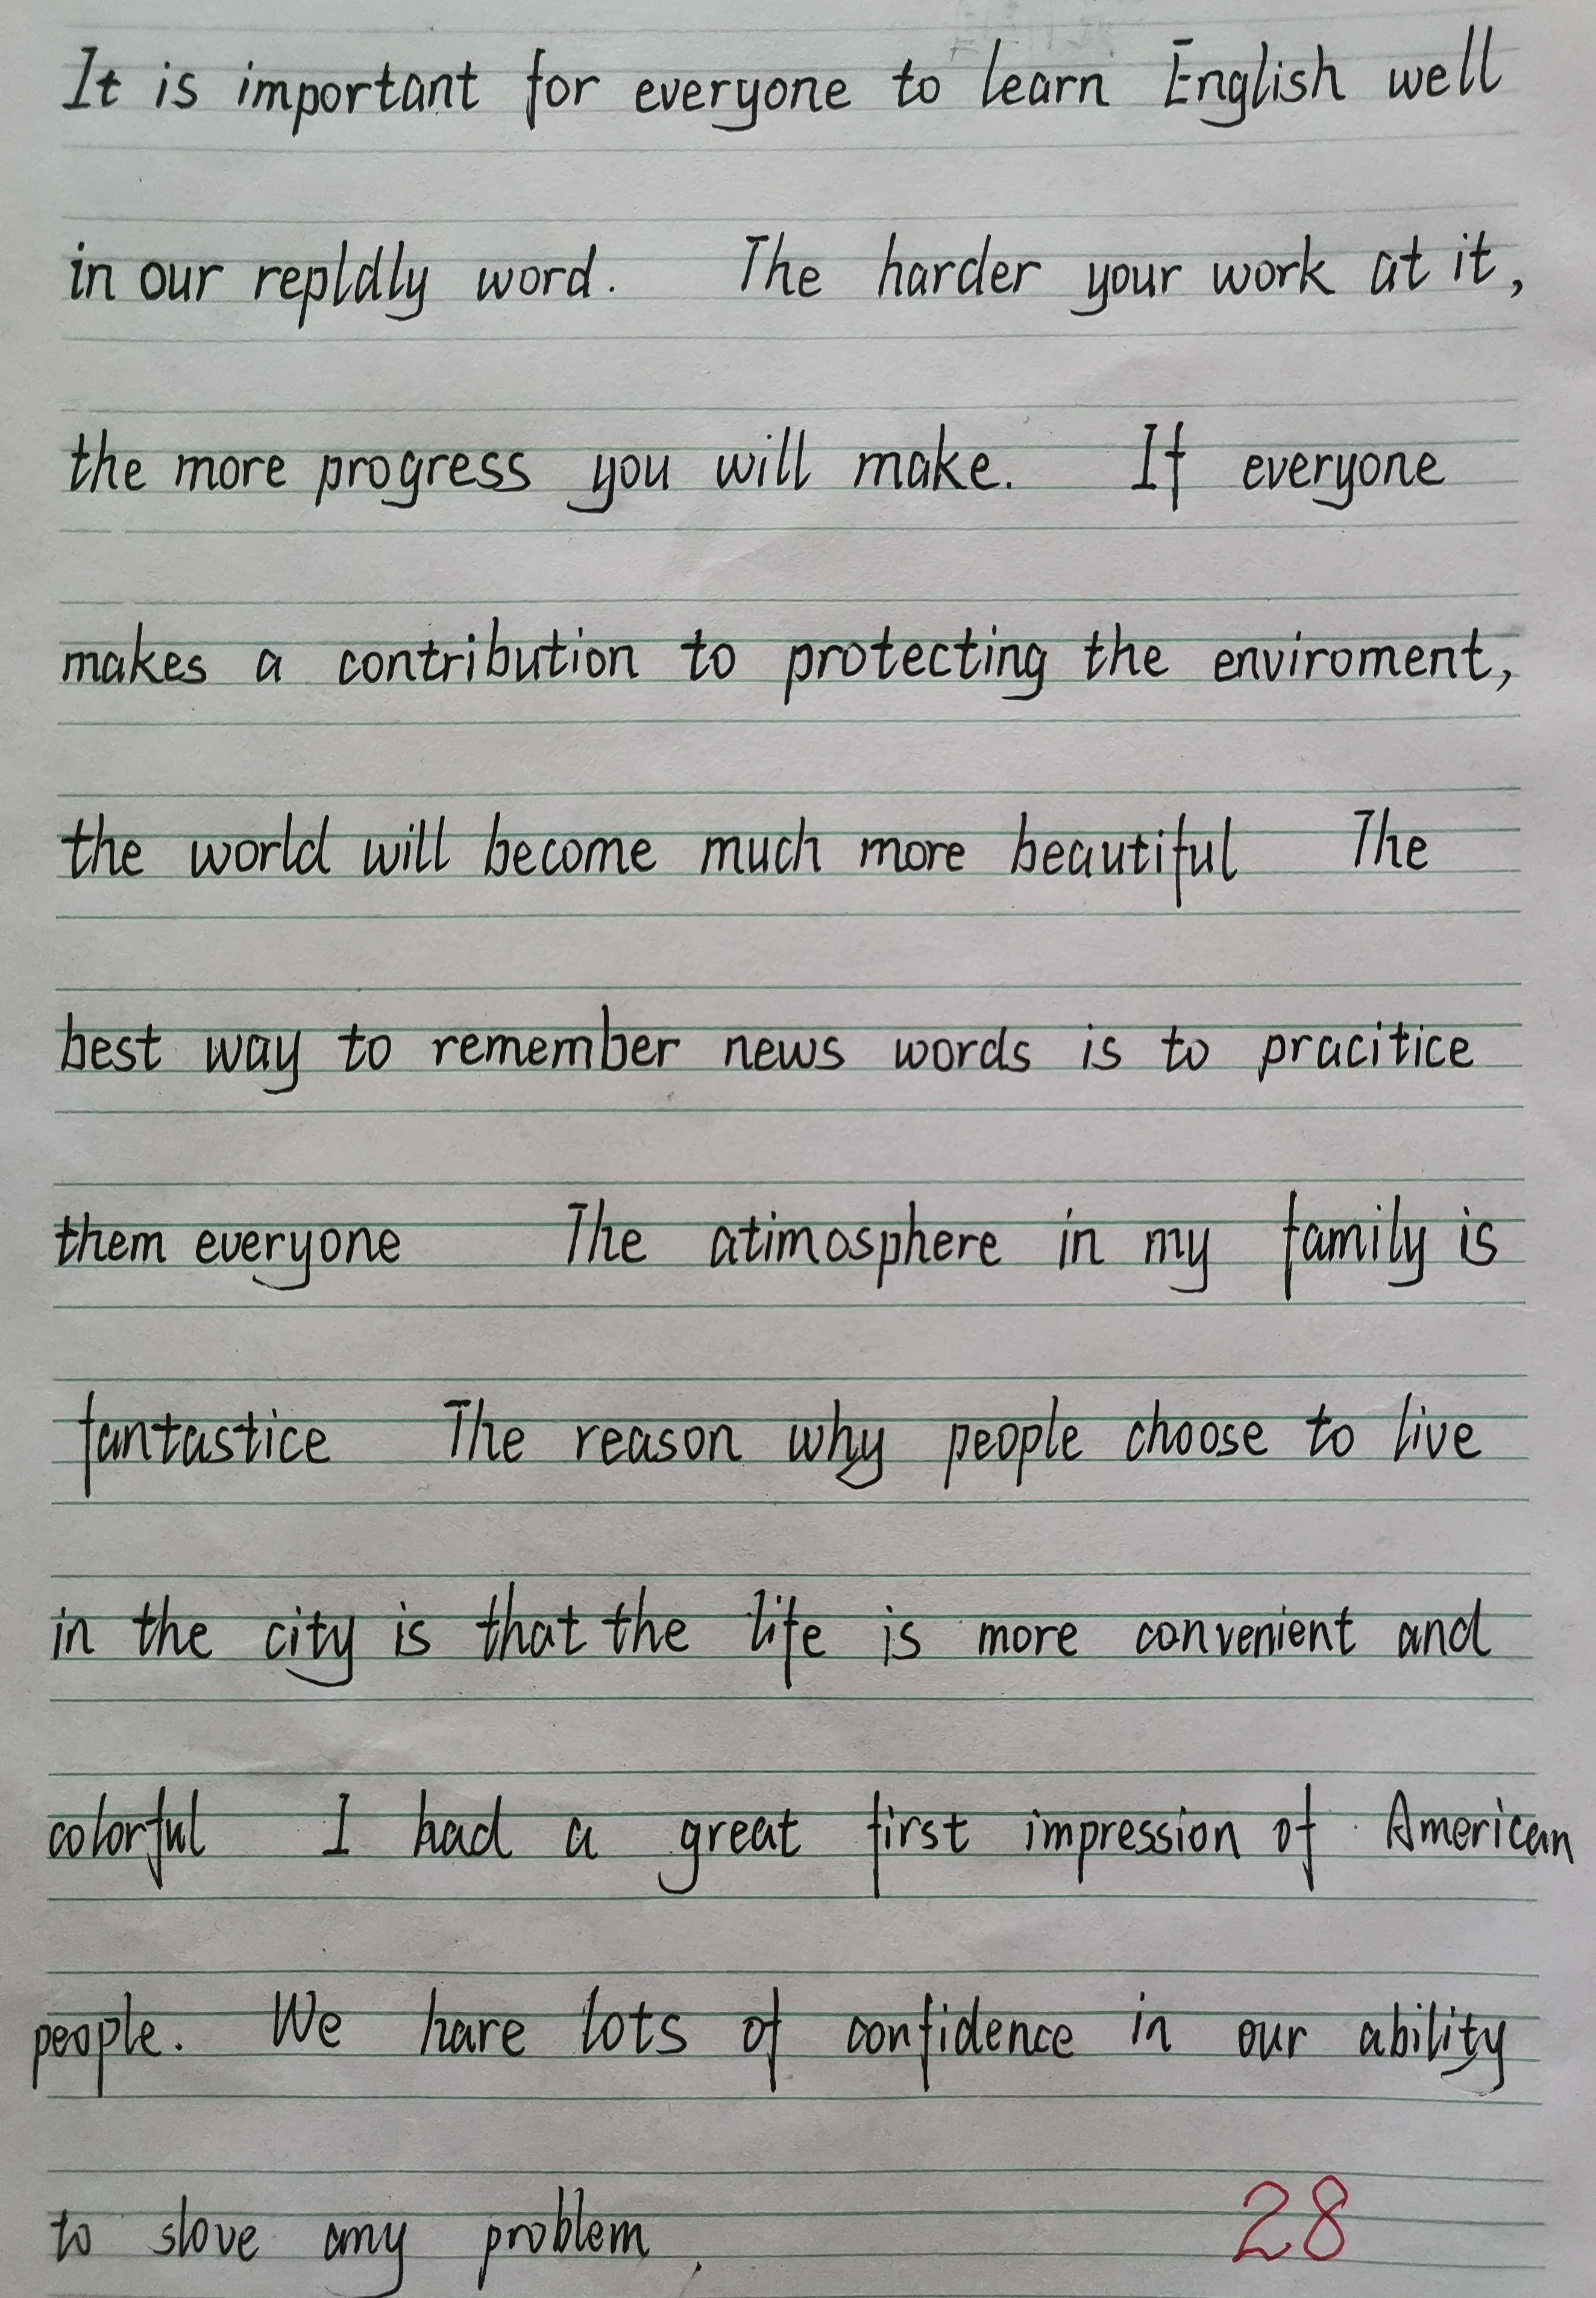 It is important for everyone to learn English well
in our repldly word. The harder your work at it,
the more progress you will make. If everyone
makes a contribution to protecting the enviroment,
the world will become much more beautiful The
best way to remember news words is to pracitice
them everyone The atimosphere in my family is
fantastice The reason why people choose to live
in the city is that the life is more convenient and
colorful I had a great first impression of American
people. We hare lots of confidence in our ability
to slove any problem.
28